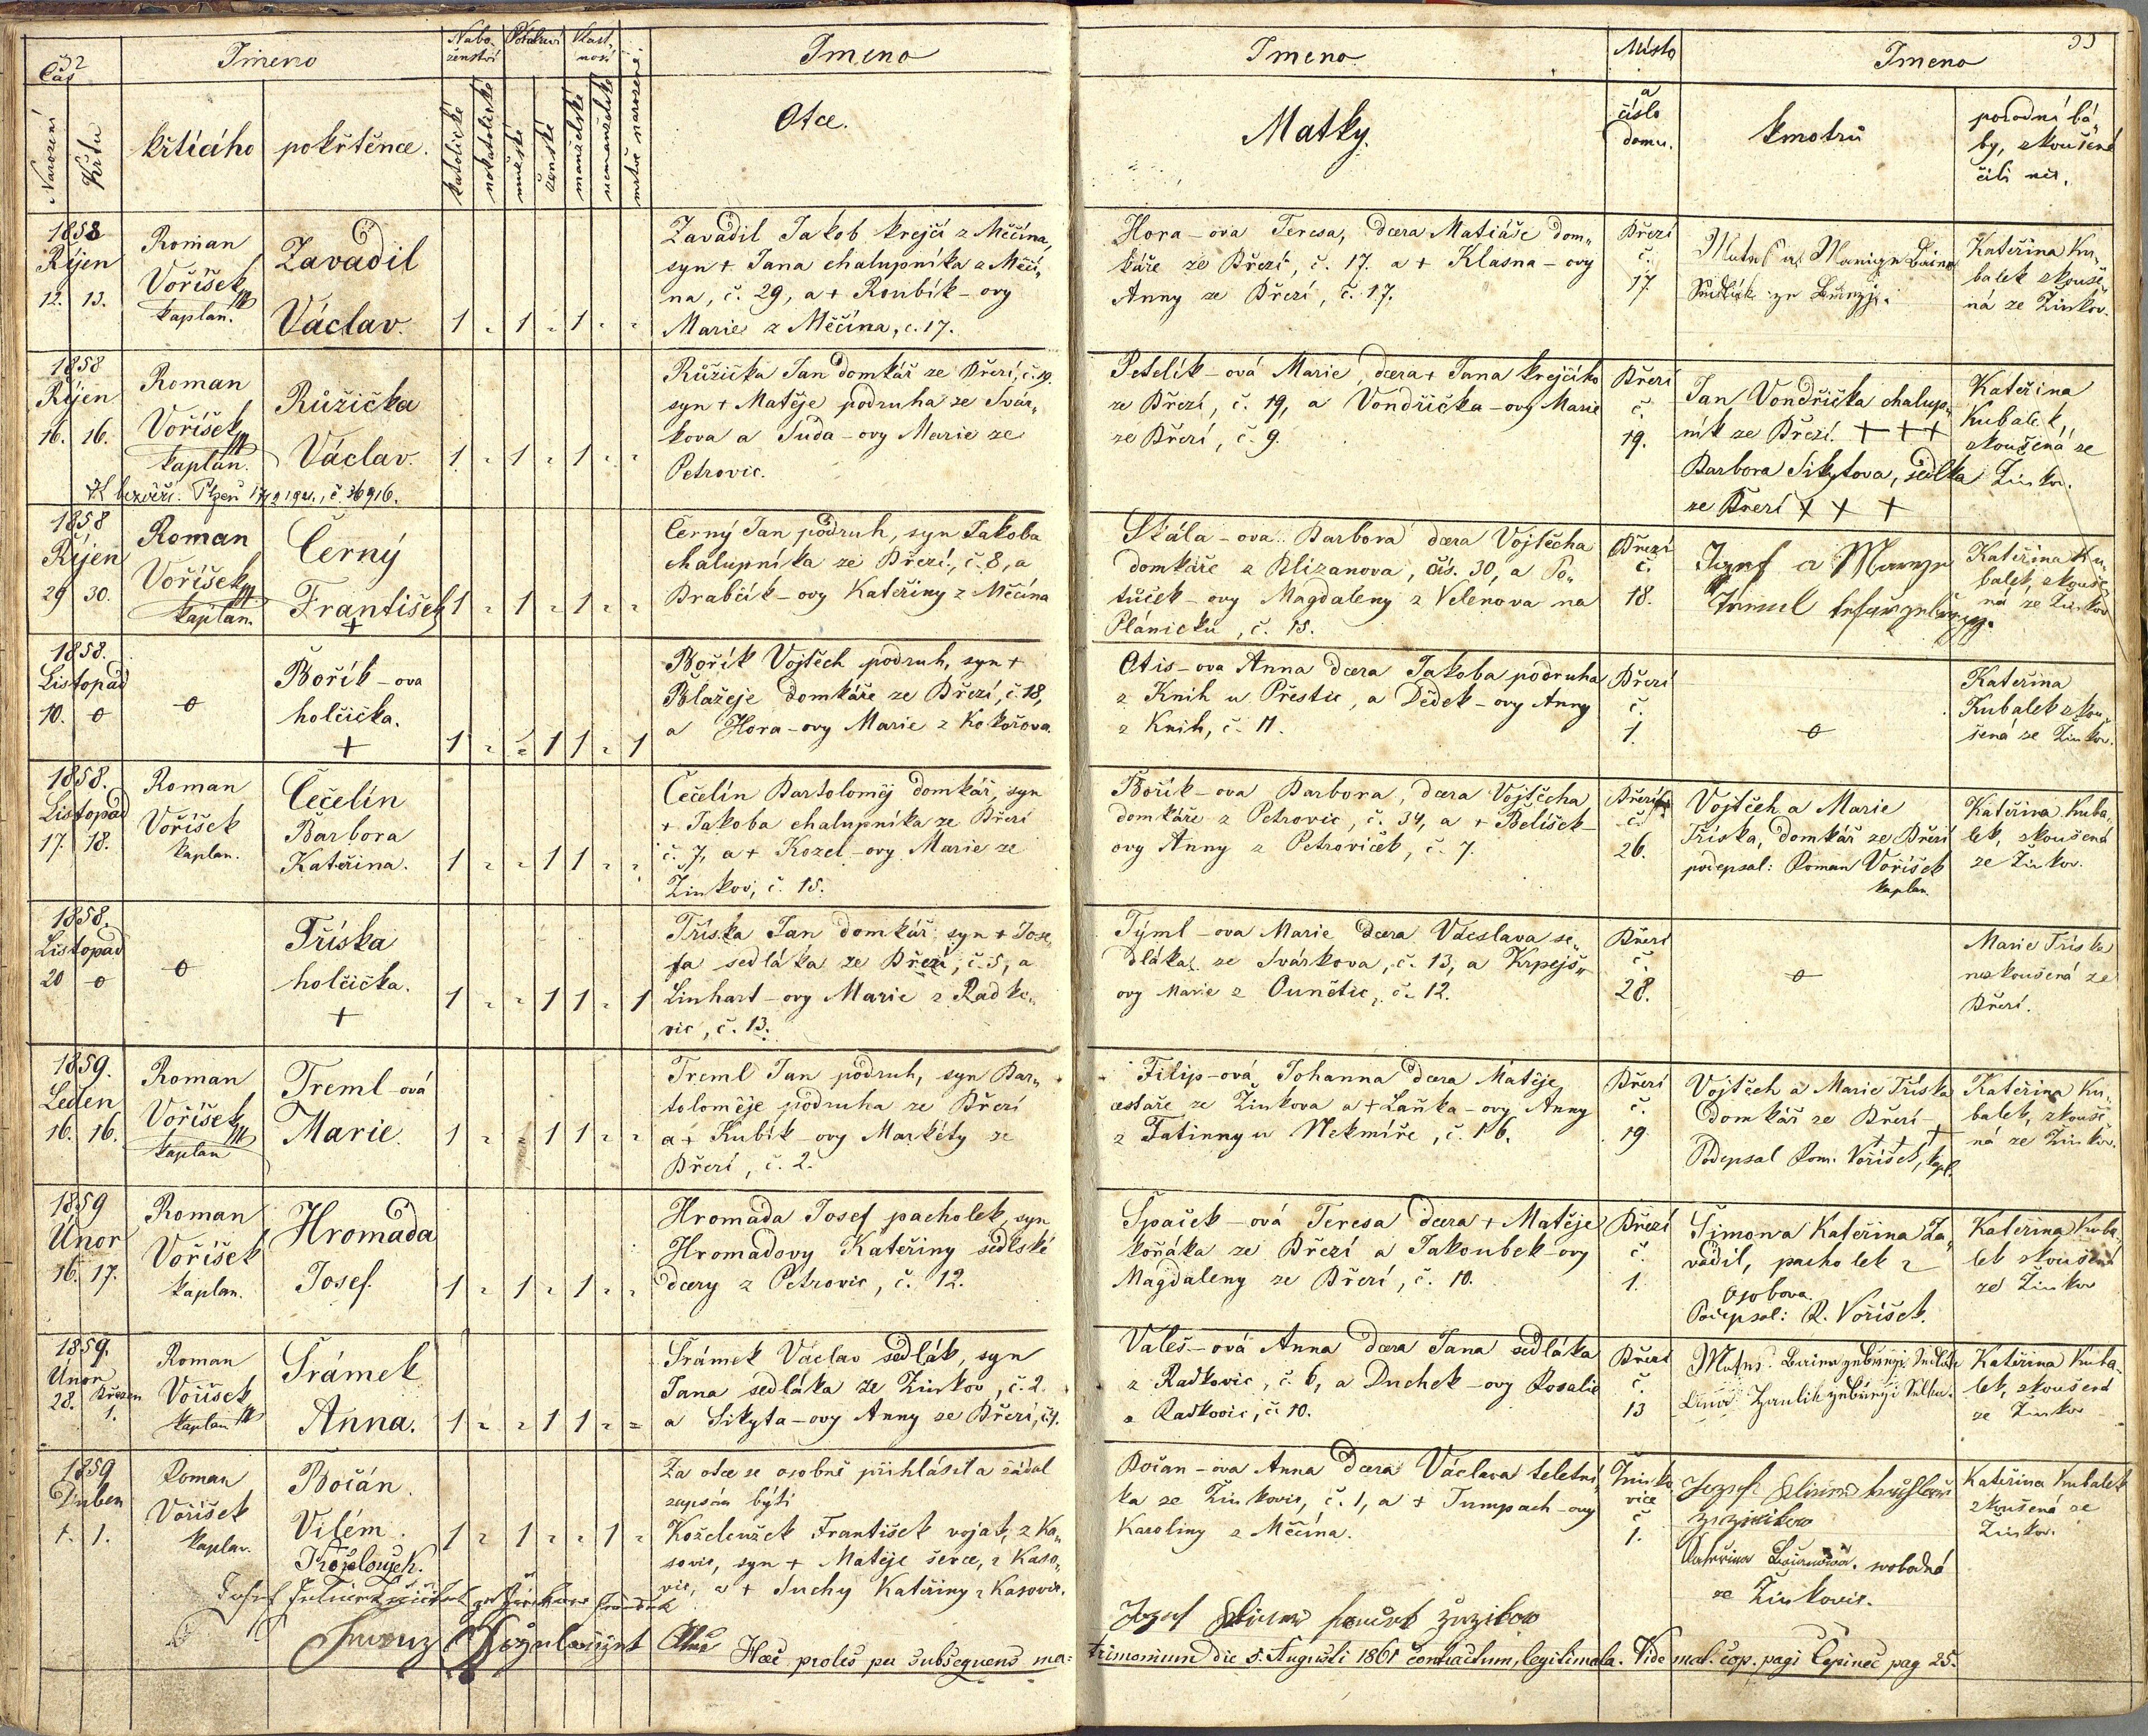 32
Čas
Narození
Křtu
Jmeno
křtícího
pokřtěnce.
Nábo-
ženství
katolické
nekatolické
Pohlaví
mužské
ženské
Vlast-
nost
manželské
nemanželské
mrtvě narozené
Jmeno
Otce.
Jmeno
Matky.
Místo
a
číslo
domu.
33
Jmeno
kmotrů
porodní bá-
by, zkoušené
čili ne.
1858
Říjen
12. 13.
Roman
Voříšek
kaplan.
Zavadil
Václav.
1 " 1 " 1 " "
Zavadil Jakob krejčí z Měčína,
syn + Jana chalupníka z Měčí-
na, č. 29, a + Roubík-ovy
Marie z Měčína, č. 17.
Hora-ova Teresa, dcera Matiáše dom-
káře ze Březí, č. 17. a + Klasna-ovy
Anny ze Březí, č. 17.
Březí
č.
17
Kateřina Ku-
balek zkouše-
ná ze Žinkov.
1858
Říjen
16. 16.
Roman
Voříšek
kaplan.
Růžička
Václav.
1 " 1 " 1 " "
Růžička Jan domkář ze Březí, č. 19.
syn + Matěje podruha ze Svár-
kova a Suda-ovy Marie ze
Petrovic.
Petelík-ová Marie, dcera + Jana krejčího
ze Březí, č. 19, a Vondřička-ovy Marie
ze Březí, č. 9.
Březí
č.
19.
Jan Vondřička chalup-
ník ze Březí. + + +
Barbora Sikytova, sedlka
ze Březí + + +
Kateřina
Kubalek,
zkoušená ze
Žinkov.
1858
Říjen
29 30.
Roman
Voříšek
kaplan.
Černý
František
+
1 " 1 " 1 " "
Černý Jan podruh, syn Jakoba
chalupníka ze Březí, č. 8, a
Brabčík-ovy Kateřiny z Měčína
Skála-ova Barbora dcera Vojtěcha
domkáře z Blizanova, čís. 30, a Po-
tůček-ovy Magdaleny z Velenova na
Plánicku, č. 15.
Březí
č.
18.
Kateřina Ku-
balek, zkouše-
ná ze Žinkov
1858.
Listopad
10. 0
0
Bořík-ova
holčička.
+
1 " " 1 1 " 1
Bořík Vojtěch podruh, syn +
Blažeje domkáře ze Březí, č. 18,
a Hora-ovy Marie z Kokořova.
Otis-ova Anna dcera Jakoba podruha
z Knih u Přeštic, a Dědek-ovy Anny
z Knih, č. 11.
Březí
č.
1.
0
Kateřina
Kubalek zkou-
šená ze Žinkov.
1858.
Listopad
17. 18.
Roman
Voříšek
kaplan.
Čečelín
Barbora
Kateřina.
1 " " 1 1 " "
Čečelín Bartoloměj domkář, syn
+ Jakoba chalupníka ze Březí
č. 7, a + Kozel-ovy Marie ze
Žinkov, č. 15.
Bořík-ova Barbora, dcera Vojtěcha
domkáře z Petrovic, č. 34, a + Belíšek-
ovy Anny z Petroviček, č. 7.
Březí
č.
26.
Vojtěch a Marie
Tříska, domkář ze Březí
podepsal: Roman Voříšek
kaplan.
Kateřina Kuba-
lek, zkoušená
ze Žinkov.
1858.
Listopad
20 0
0
Tříska
holčička.
+
1 " " 1 1 " 1
Tříska Jan domkář, syn + Jose-
fa sedláka ze Březí, č. 5, a
Linhart-ovy Marie z Radko-
vic, č. 13.
Týml-ova Marie dcera Václava se-
dláka ze Svárkova, č. 13, a Krpejš-
ovy Marie z Ounětic, č. 12.
Březí
č.
28.
0
Marie Tříska
nezkoušená ze
Březí.
1859.
Leden
16. 16.
Roman
Voříšek
kaplan
Treml-ová
Marie.
1 " " 1 1 " "
Treml Jan podruh, syn Bar-
toloměje podruha ze Březí
a + Kubík-ovy Markéty ze
Březí, č. 2.
Filip-ová Johanna dcera Matěje
cestáře ze Žinkova a + Laňka-ovy Anny
z Tatinny u Nekmíře, č. 16.
Březí
č.
19
Vojtěch a Marie Tříska
domkář ze Březí
+ + +
Podepsal Rom. Voříšek, kapl.
Kateřina Ku-
balek, zkouše-
ná ze Žinkov.
1859
Únor
16. 17.
Roman
Voříšek
kaplan.
Hromada
Josef.
1 " 1 " 1 " "
Hromada Josef pacholek, syn
Hromadovy Kateřiny sedlské
dcery z Petrovic, č. 12.
Spaček-ová Teresa dcera + Matěje
kořáka ze Březí a Jakoubek-ovy
Magdaleny ze Březí, č. 10.
Březí
č.
1.
Šimona Kateřina Za-
vadil, pacholek z
Osobova.
Podepsal: R. Voříšek.
Kateřina Kuba-
lek zkoušená
ze Žinkov
1859.
Únor
28. Březen
1.
Roman
Voříšek
kaplan
Šrámek
Anna.
1 " " 1 1 " "
Šrámek Václav sedlák, syn
Jana sedláka ze Žinkov, č. 2.
a Sikyta-ovy Anny ze Březí, č. 1.
Valeš-ová Anna dcera Jana sedláka
z Radkovic, č. 6, a Duchek-ovy Rosalie
z Radkovic, č. 10.
Březí
č.
13
Kateřina Kuba-
lek, zkoušená
ze Žinkov
1859
Duben
1. 1.
Roman
Voříšek
kaplan.
Bočán
Vilém.
Koželoužek.
1 " 1 " " 1 "
Za otce se osobně přihlásil a žádal
zapsán býti
Koželoužek František voják, z Ka-
sovic, syn + Matěje ševce, z Kaso-
vic, a + Suchy Kateřiny z Kasovic.
Bočan-ova Anna dcera Václava teletní-
ka ze Žinkovic, č. 1, a + Tumpach-ovy
Karoliny z Měčína.
Žinko-
vice
č.
1.
svobodná
ze Žinkovic.
Kateřina Kubalek
zkoušená ze
Žinkov.
Haec proles per subsequens ma-
trimonium die 5. Augusti 1861 contractum, legitimata. Vide mat. cop. pagi Čepinec pag 25.